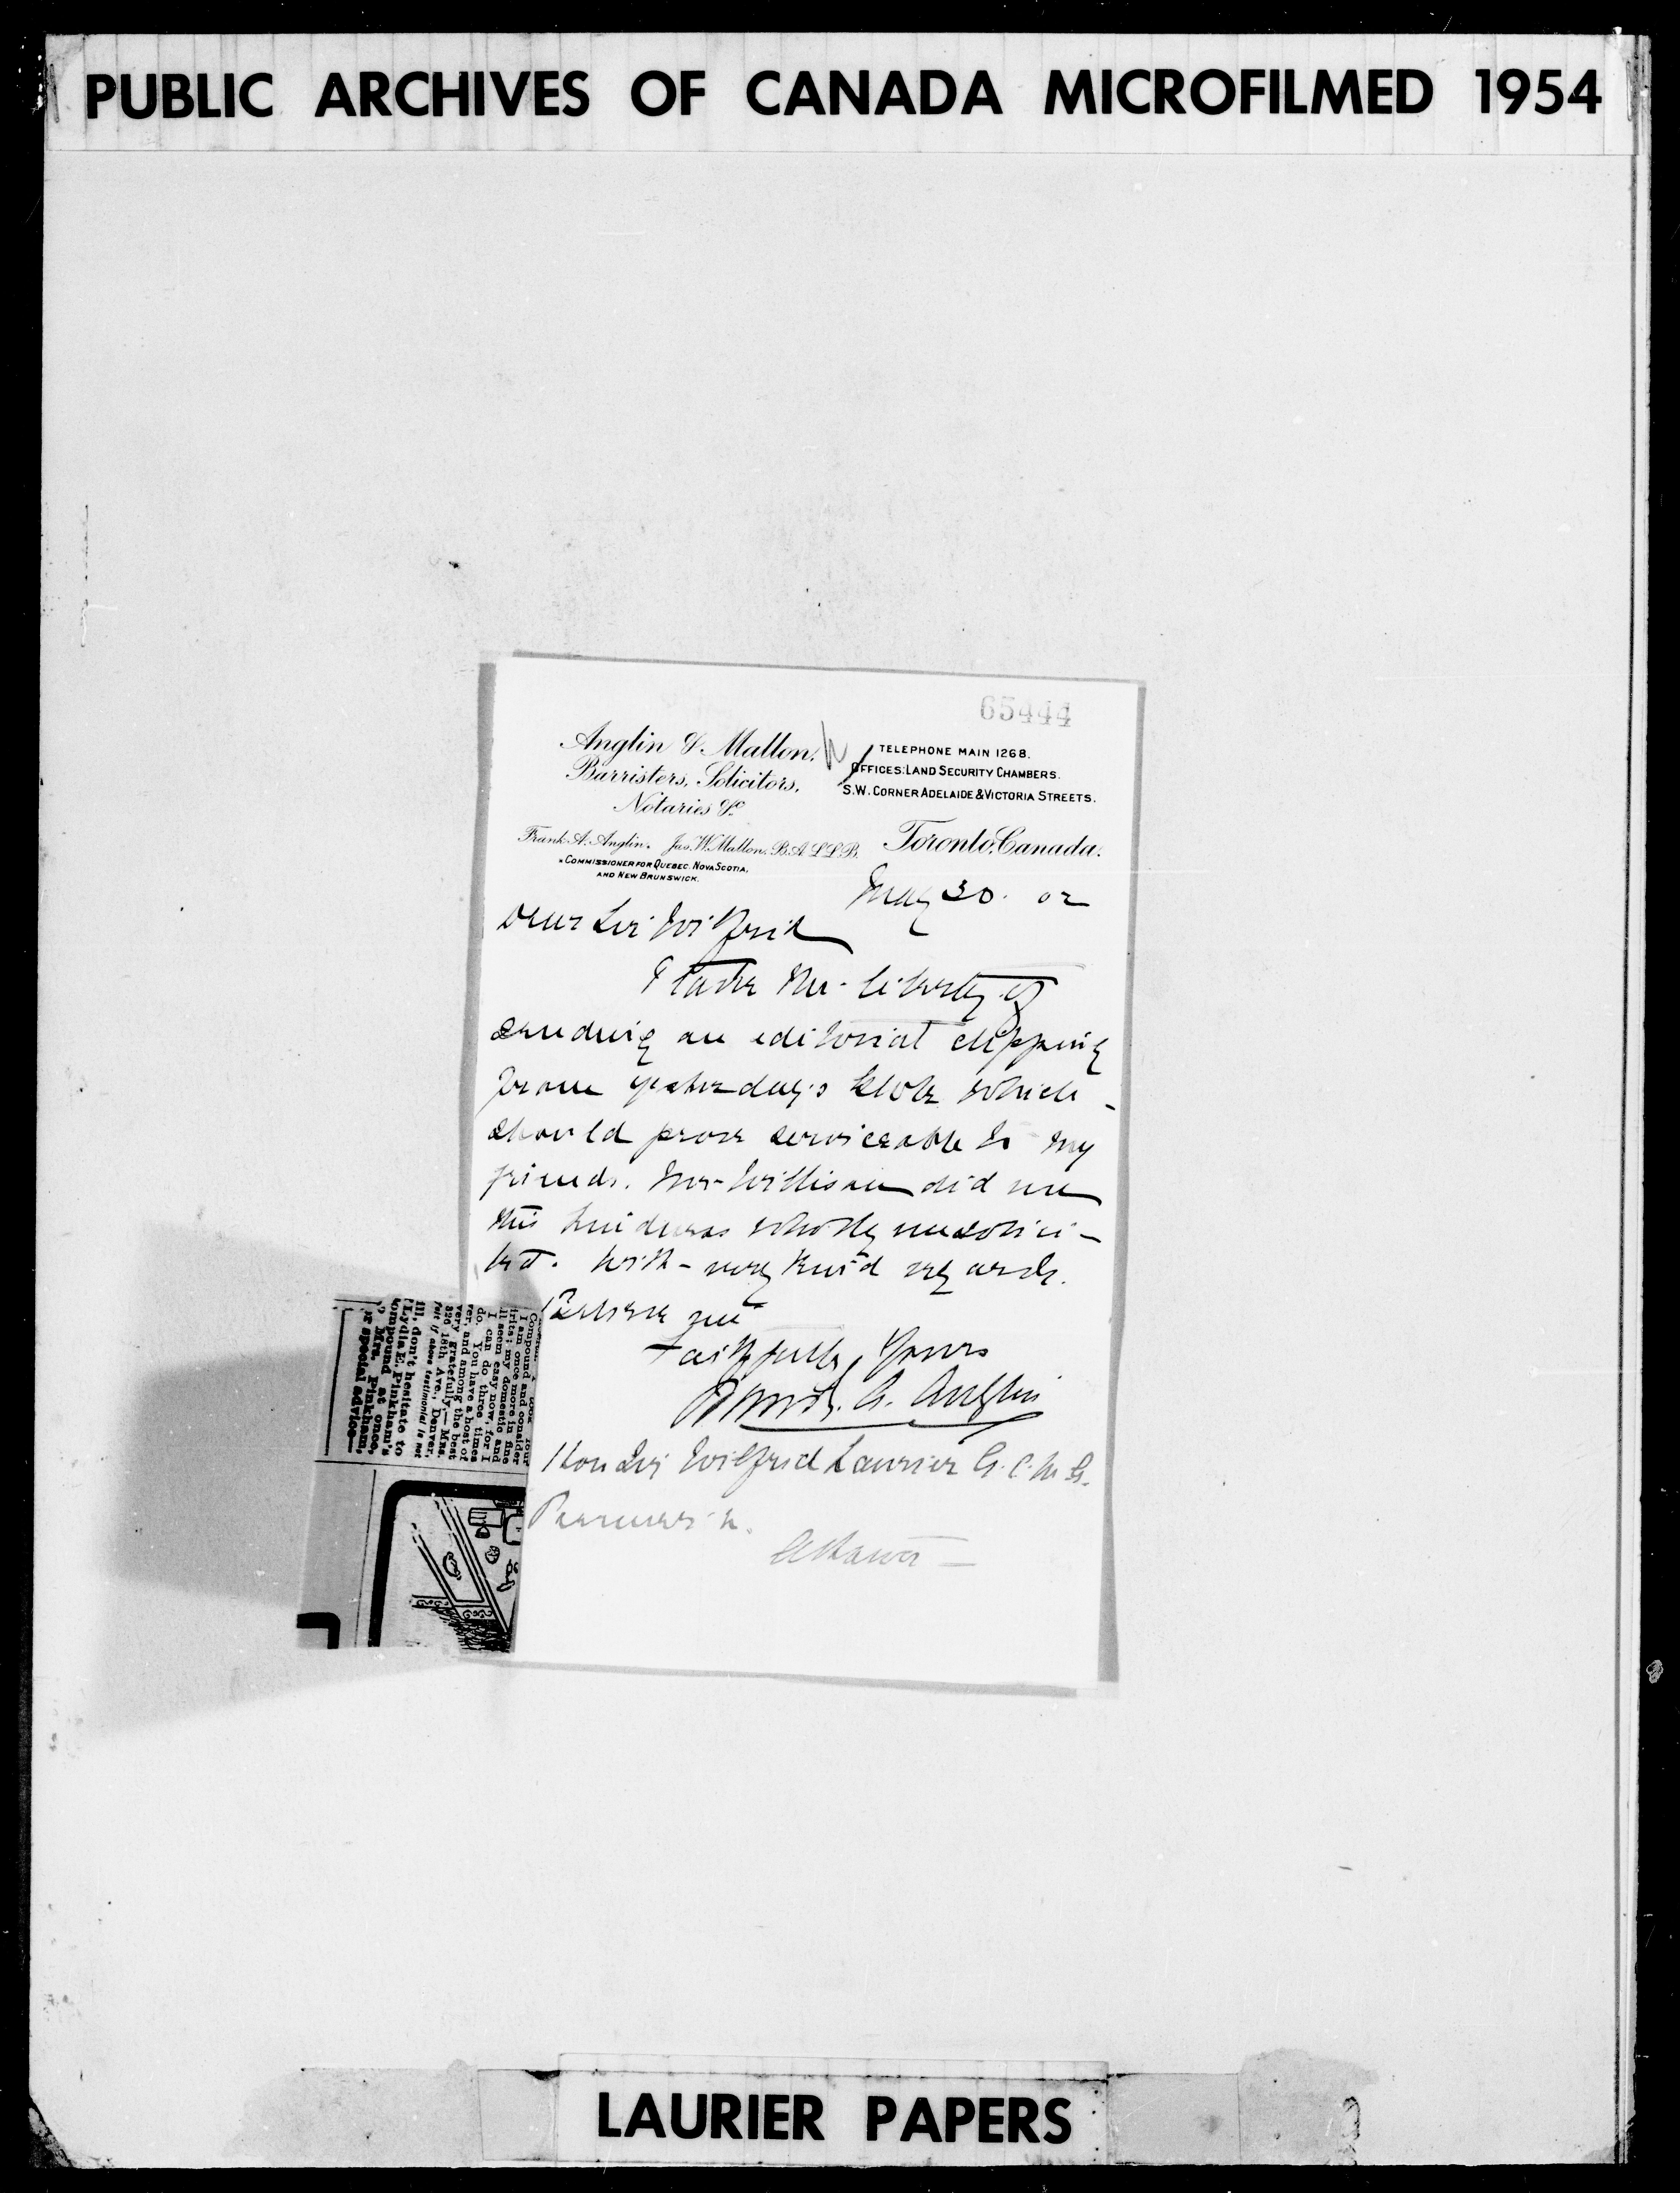 PUBLIC ARCHIVES OF CANADA MICROFILMED 1954
65444
Anglin & Mallon.
Barristers, Solicitors,
Notaries &c
Frank A. Anglin. Jas. W. Mallon. B.A. L.L.B.
COMMISSIONER FOR QUEBEC. NOVA SCOTIA,
AND NEW BRUNSWICK.
TELEPHONE MAIN 1268.
OFFICES: LAND SECURITY CHAMBERS.
S.W. CORNER ADELAIDE & VICTORIA STREETS.
Toronto, Canada.
May 30. 02
Dear Sir Wilfrid
I take the liberty of
sending an editorial clipping
from yesterday's Globe which
should prove serviceable to my
friends. Mr Willison did me
this kindness wholly unsolici-
ted. With very kind regards.
Believe me
Faithfully Yours
A. Anglin
Hon Sir Wilfrid Laurier G.C.M.G.
Premier
Ottawa
Compound and consider
I am once more in fine
irits; my domestic and
ll seem easy now, for I
I can do three times
do. You have a host of
ver, and among the best
very gratefully,—Mrs.
326 18th Ave., Denver,
feit if above testimonial is not
ill, don't hesitate to
Lydia E. Pinkham's
ompound at once,
Mrs. Pinkham,
r special advice—
LAURIER PAPERS